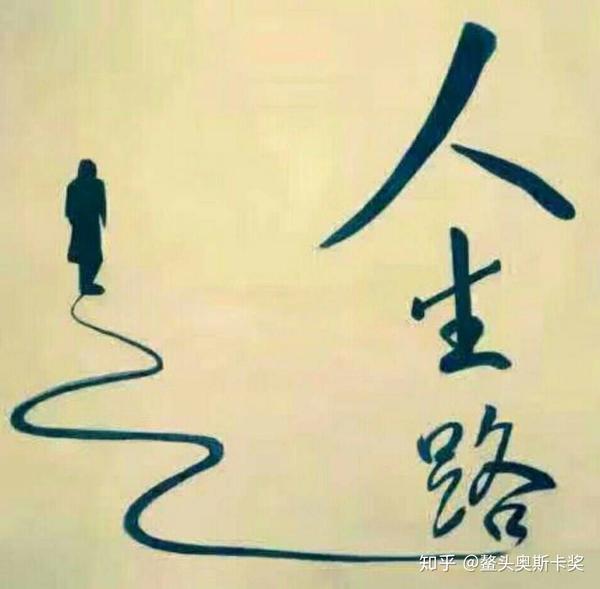 人
生
路
知乎 @鳌头奥斯卡奖